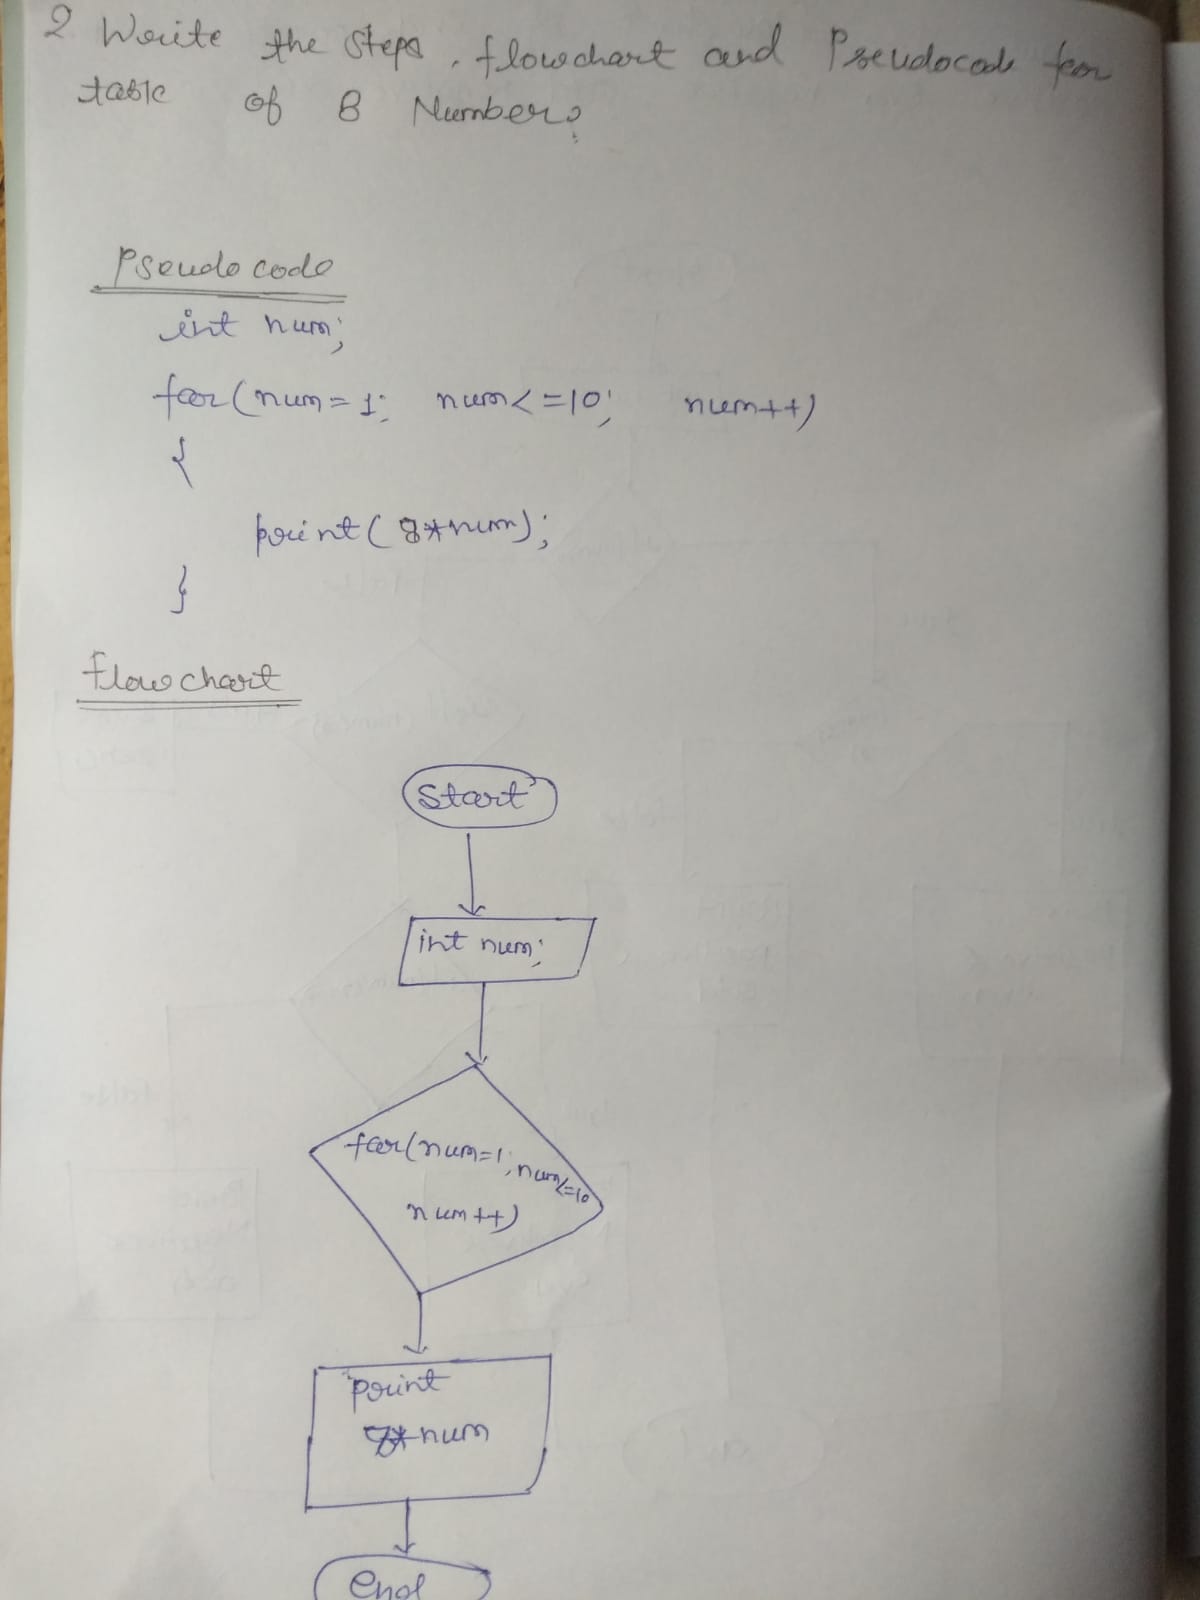 2. Write the Steps, flowchart and Pseudocode for
table of 8 Number?
Pseudo code
int num;
for(num=1; num<=10; num++)
{
print(8*num);
}
flowchart
Start
int num;
for(num=1; num<=10
num++)
print
8*num
End